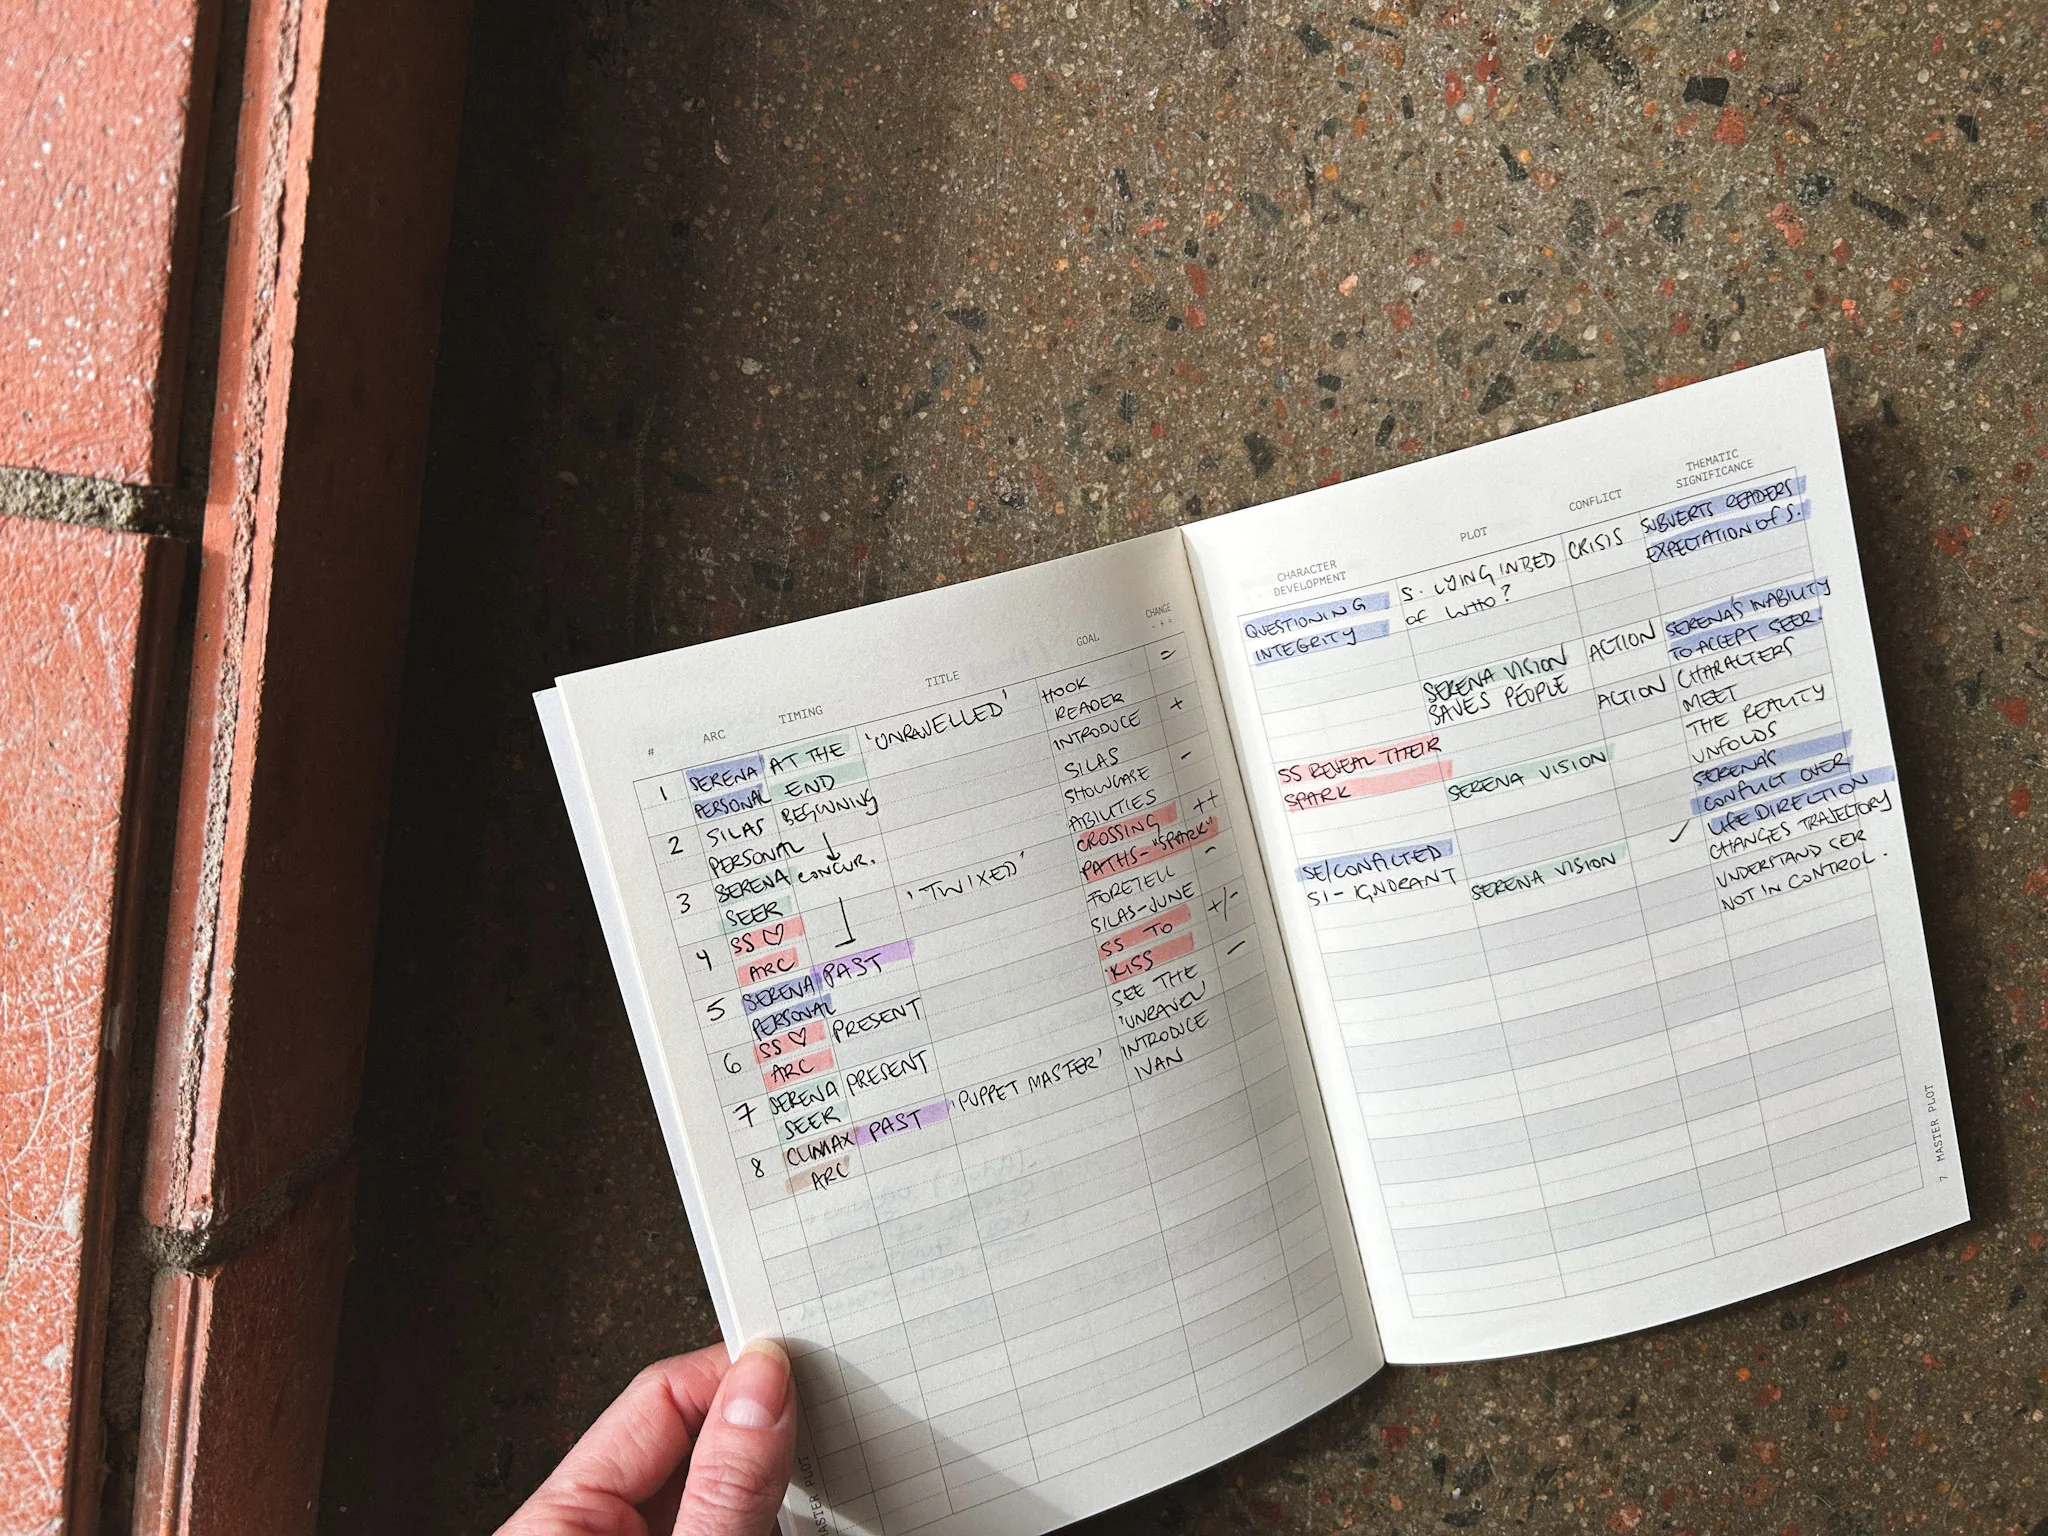 # ARC TIMING TITLE GOAL CHANGE
- + =
1 SERENA AT THE 'UNRAVELLED' HOOK =
PERSONAL END READER
2 SILAS BEGINNING INTRODUCE +
PERSONAL SILAS
3 SERENA CONCUR. SHOWCASE -
SEER ABILITIES
4 SS ♡ 'TWIXED' CROSSING ++
ARC PATHS-"SPARK"
5 SERENA PAST FORETELL -
PERSONAL SILAS-JUNE
6 SS ♡ PRESENT SS TO +/-
ARC 'KISS
7 SERENA PRESENT SEE THE -
SEER 'UNRAVEL'
8 CLIMAX PAST 'PUPPET MASTER' INTRODUCE
ARC IVAN
MASTER PLOT
CHARACTER DEVELOPMENT PLOT CONFLICT THEMATIC SIGNIFICANCE
QUESTIONING S. LYING IN BED CRISIS SUBVERTS READERS
INTEGRITY OF WHO? EXPECTATION OF S.
SERENA VISION ACTION SERENA'S INABILITY
SAVES PEOPLE TO ACCEPT SEER.
SS REVEAL THEIR ACTION CHARACTERS
SPARK MEET
SERENA VISION THE REALITY
UNFOLDS
SE/CONFICTED SERENA'S
SI - IGNORANT CONFLICT OVER
LIFE DIRECTION
SERENA VISION ✓ CHANGES TRAJECTORY
UNDERSTAND SEER
NOT IN CONTROL.
7 MASTER PLOT